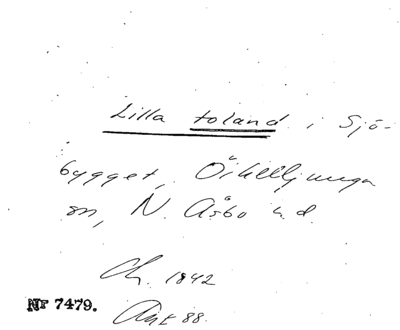 Lilla toland i Sjö-
bygget, Örkelljunga
sn, N. Åsbo hd.
Ch. 1842
NR 7479.
Ant 88.